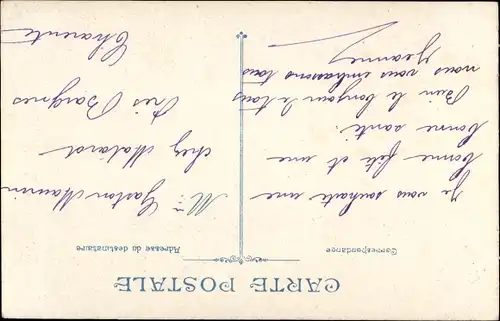 CARTE POSTALE
Correspondance
Je vous souhaite une
bonne fête et une
bonne santé.
Bien le bonjour de tous
nous vous embrassons tous
Jeanne
Adresse du destinataire
Mr Gaston Maurin
chez Malard
Près Baignes
Charente